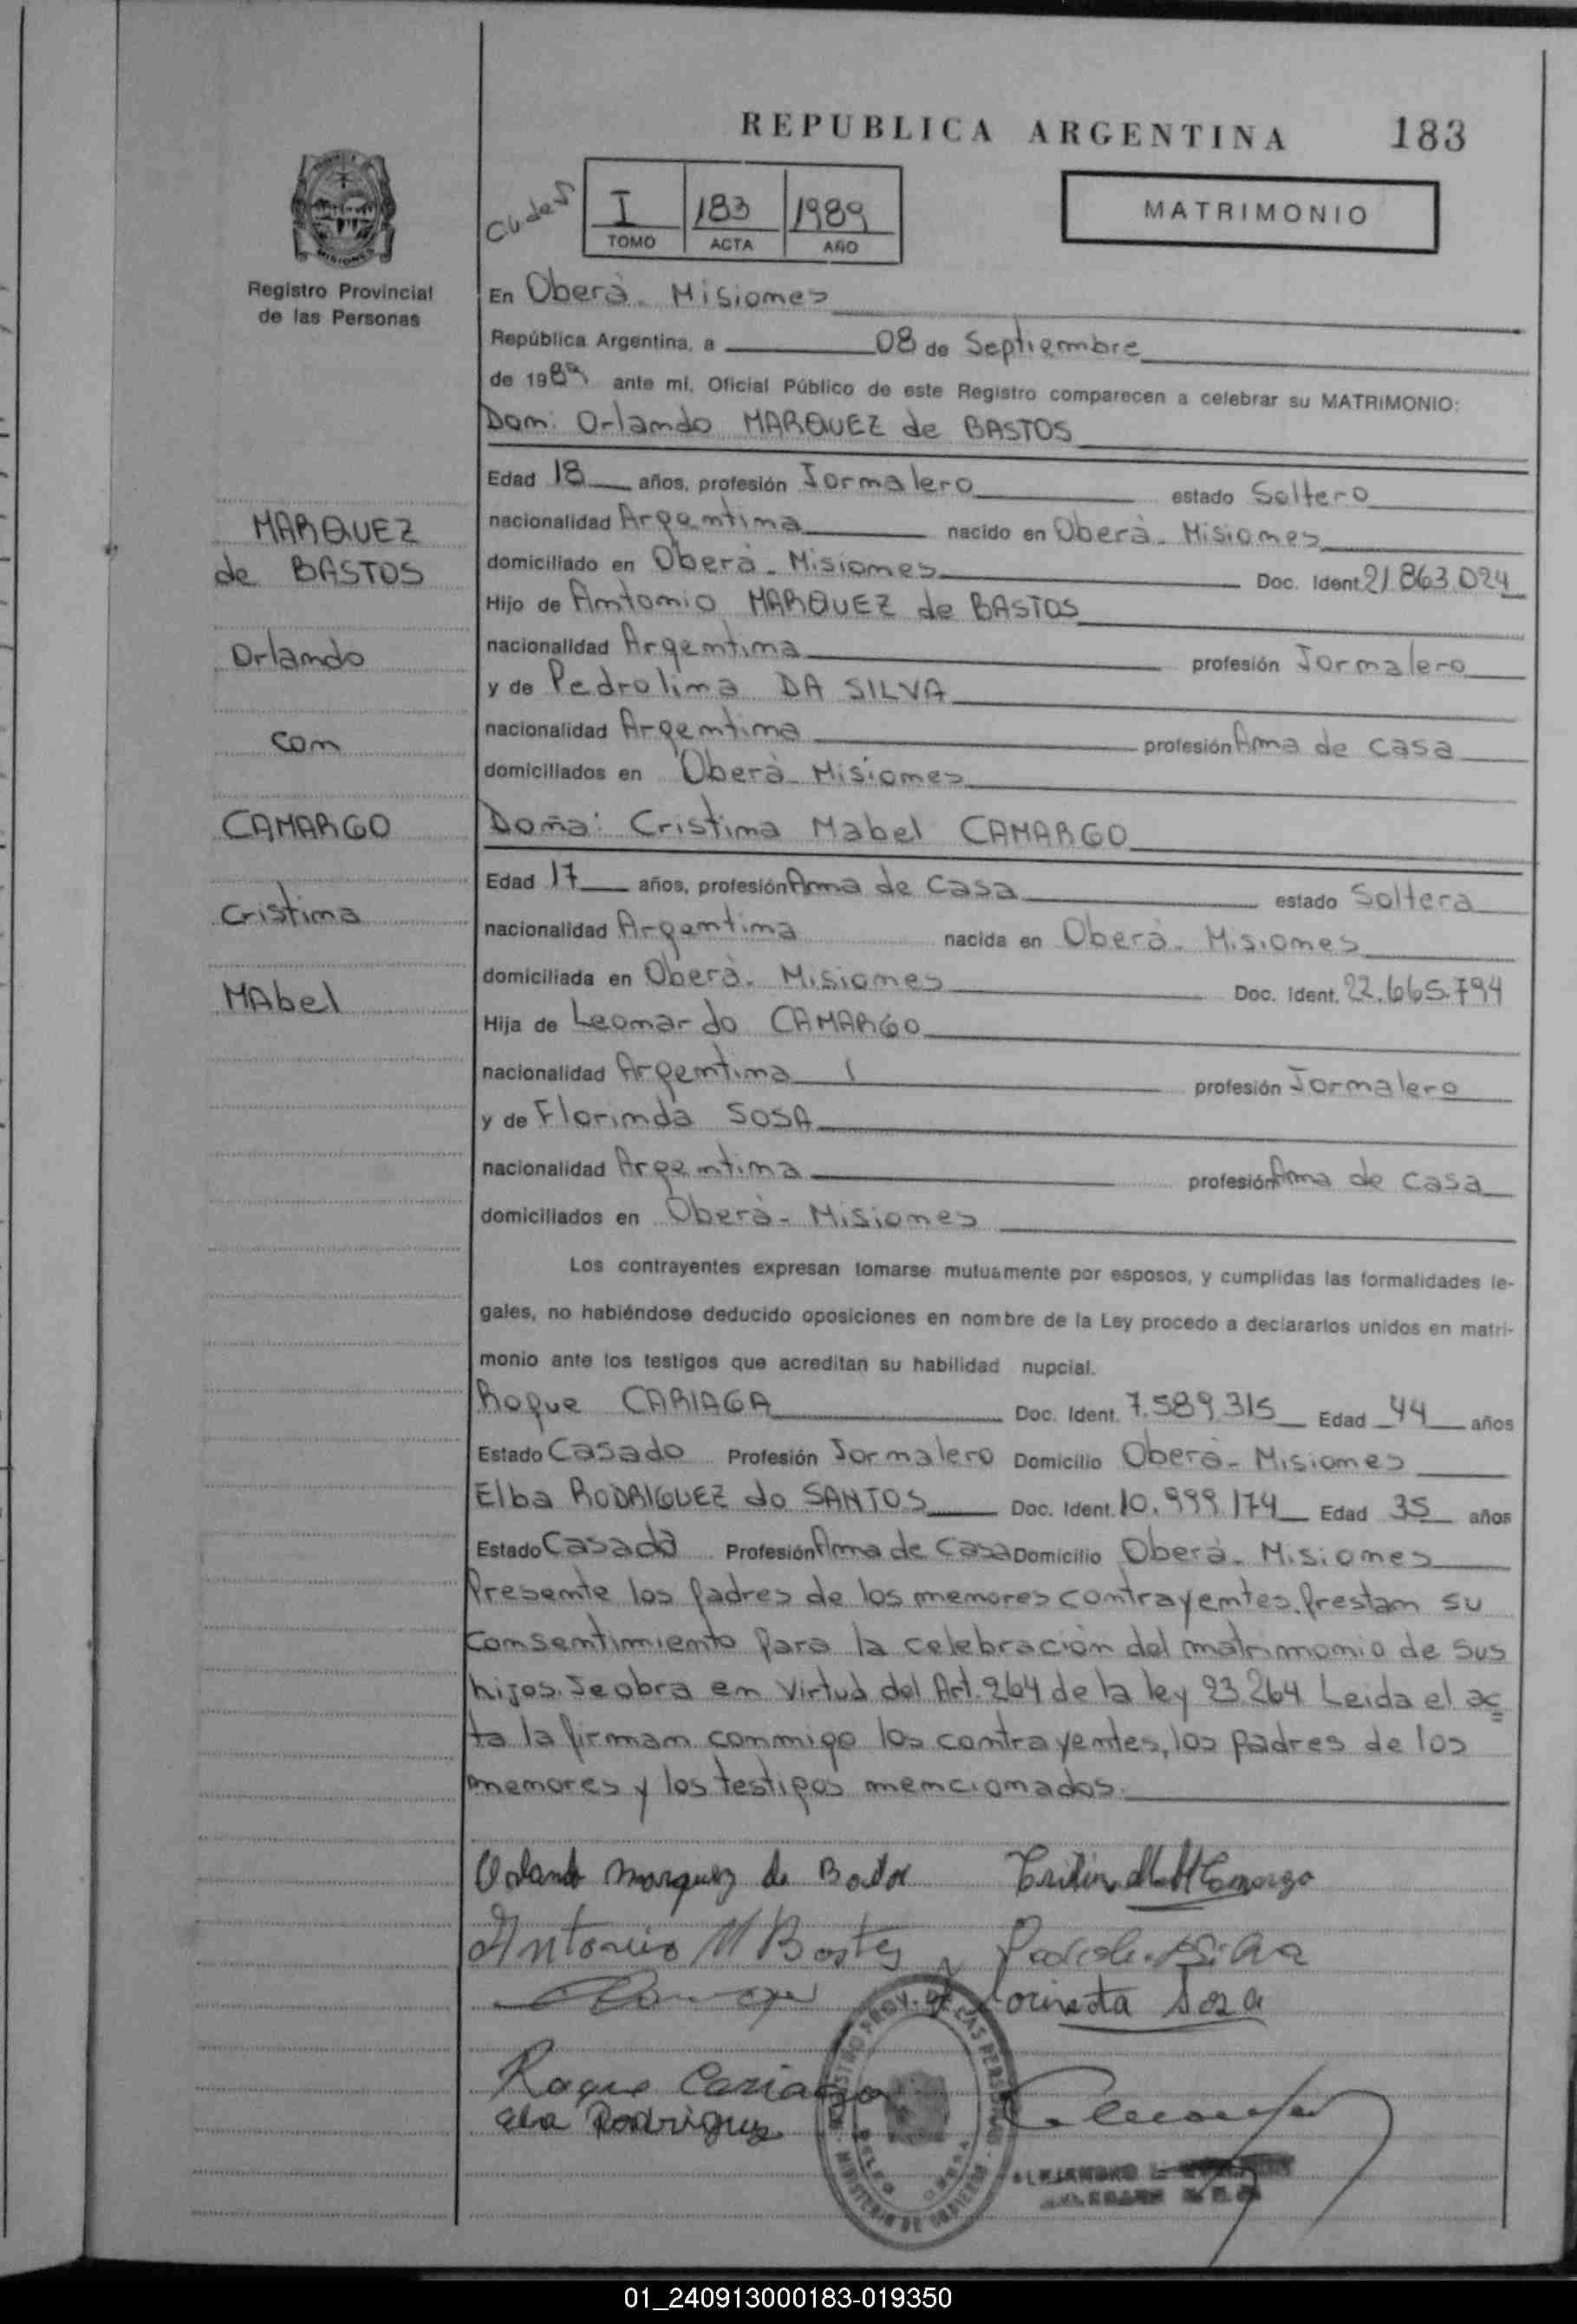 REPUBLICA ARGENTINA 183
I 183 1989
TOMO ACTA AÑO
MATRIMONIO
MISIONES
Registro Provincial
de las Personas
En Oberà - Misiones
República Argentina, a 08 de Septiembre
de 1989 ante mí, Oficial Público de este Registro comparecen a celebrar su MATRIMONIO:
Don: Orlando MARQUEZ de BASTOS
Edad 18 años, profesión Jornalero estado Soltero
nacionalidad Argentina nacido en Oberà - Misiones
domiciliado en Oberà - Misiones Doc. Ident. 21.863.024
Hijo de Antonio MARQUEZ de BASTOS
nacionalidad Argentina profesión Jornalero
y de Pedrolina DA SILVA
nacionalidad Argentina profesión Ama de casa
domiciliados en Oberà - Misiones
Doña: Cristina Mabel CAMARGO
Edad 17 años, profesión Ama de casa estado Soltera
nacionalidad Argentina nacida en Oberà - Misiones
domiciliada en Oberà - Misiones Doc. Ident. 22.665.794
Hija de Leonardo CAMARGO
nacionalidad Argentina profesión Jornalero
y de Florinda SOSA
nacionalidad Argentina profesión Ama de casa
domiciliados en Oberà - Misiones
MARQUEZ
de BASTOS
Orlando
con
CAMARGO
Cristina
MAbel
Los contrayentes expresan tomarse mutuamente por esposos, y cumplidas las formalidades le-
gales, no habiéndose deducido oposiciones en nombre de la Ley procedo a declararlos unidos en matri-
monio ante los testigos que acreditan su habilidad nupcial.
Roque CARIAGA Doc. Ident. 7.589.315 Edad 44 años
Estado Casado Profesión Jornalero Domicilio Oberà - Misiones
Elba RODRIGUEZ do SANTOS Doc. Ident. 10.999.174 Edad 35 años
Estado Casada Profesión Ama de Casa Domicilio Oberà - Misiones
Presente los padres de los menores contrayentes, prestan su
consentimiento para la celebración del matrimonio de sus
hijos. Se obra en Virtud del Art. 264 de la ley 23.264 Leida el ac
ta la firman conmigo los contrayentes, los padres de los
menores y los testigos mencionados.
Orlando Marquez de Bastos
Antonio M Bastos
Sosa
Roque Cariaga
Elba Rodriguez
REGISTRO PROV. DE LAS PERSONAS
MINISTERIO DE GOBIERNO
ALEJANDRO
01_240913000183-019350